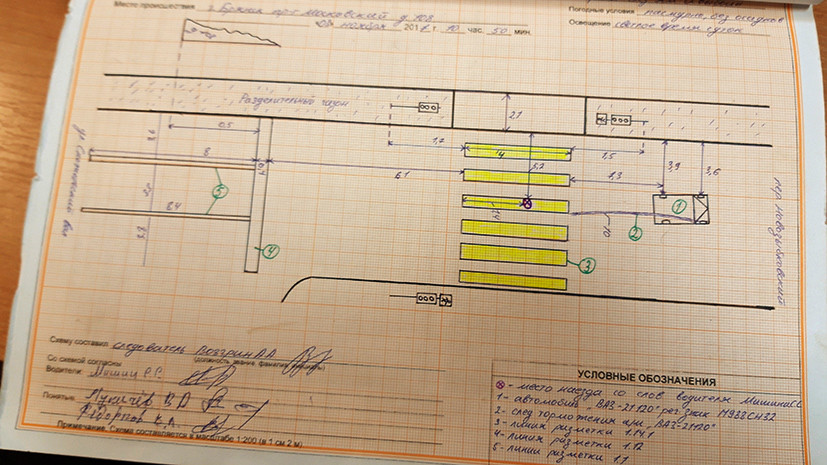 Место происшествия г. Брянск пр-т Московский д. 108
ноября 201 г. 10 час. 50 мин.
Погодные условия пасмурно, без осадков
Освещение светлое время суток
Разделительный газон
2,1
0,5
1,7
14
3,2
1,5
8
0,4
6,1
8,3
3,9
3,6
5
8,4
1,4
10
1
2
3
4
3,8
пер. Новозыбковский
Схему составил следователь
(должность, звание, фамилия, инициалы)
Со схемой согласны
Водители:
Понятые:
Примечание. Схема составляется в масштабе 1:200 (в 1 см 2 м)
УСЛОВНЫЕ ОБОЗНАЧЕНИЯ
- место наезда со слов водителя
1 - автомобиль "ВАЗ-21120" рег знак М988СН32
2 - след торможения а/м "ВАЗ-21120"
3 - линии разметки 1.14.1
4 - линии разметки 1.12
5 - линии разметки 1.1